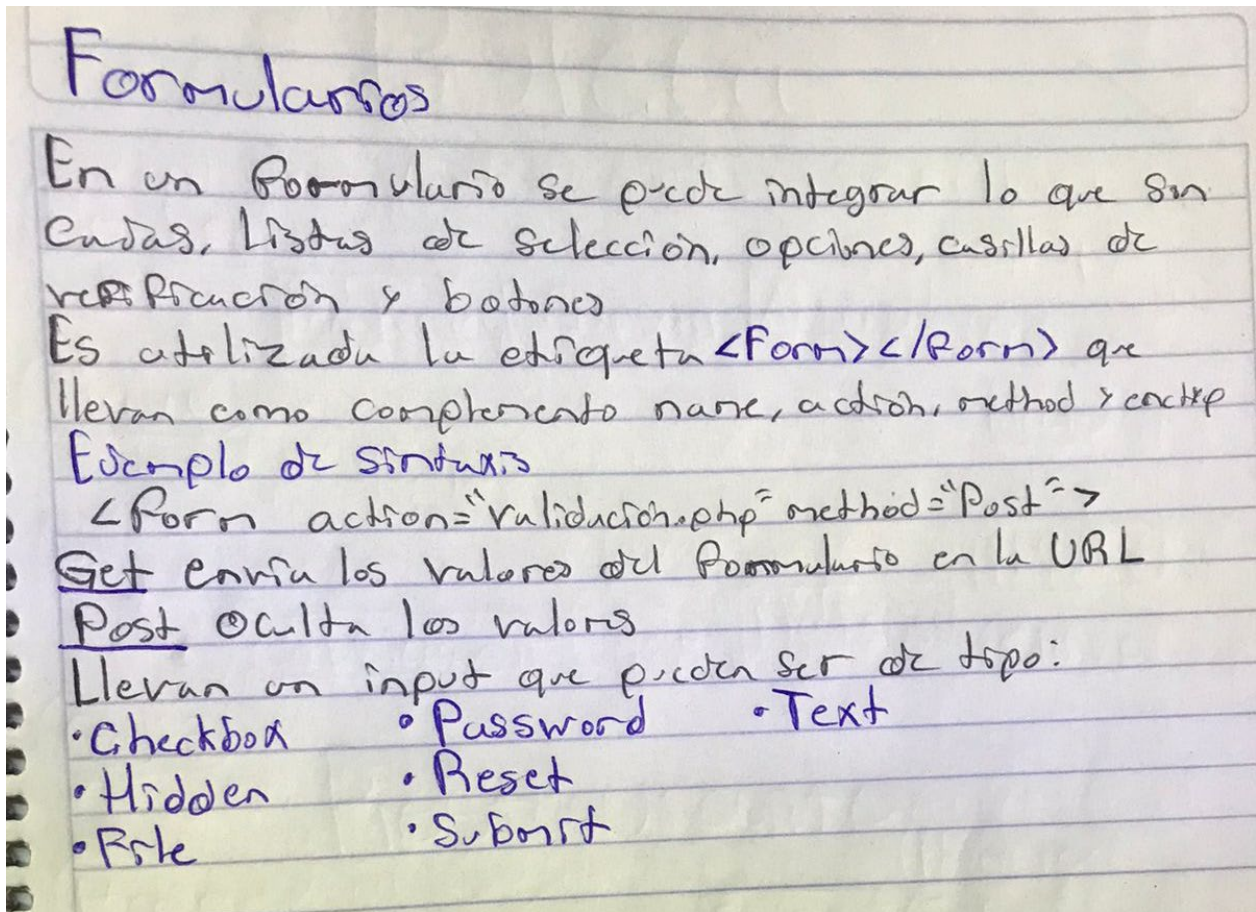 Formularios
En un formulario se puede integrar lo que son
cajas, listas de selección, opciones, casillas de
verificación y botones
Es utilizada la etiqueta <Form></form> que
llevan como complemento name, action, method y enctyp
Ejemplo de sintaxis
<form action="validación.php" method="Post">
Get envía los valores del formulario en la URL
Post oculta los valores
Llevan un input que pueden ser de tipo:
• Checkbox • Password • Text
• Hidden • Reset
• File • Submit